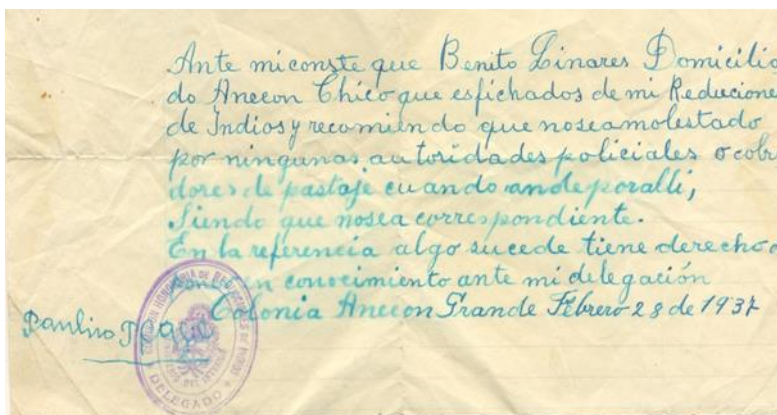 Ante mi conste que Benito Linares Domicilia
do Anecon Chico que esfichados de mi Reducione
de Indios y recomiendo que noseamolestado
por ningunas autoridades policiales o cobra
dores de pastaje cuando andeporalli,
Siendo que nosea correspondiente.
En la referencia algo sucede tiene derecho a
en conocimiento ante mi delegación
Colonia Anecon Grande Febrero 28 de 1937
Paulino
COMISION HONORARIA DE REDUCCIONES DE INDIOS
DELEGADO